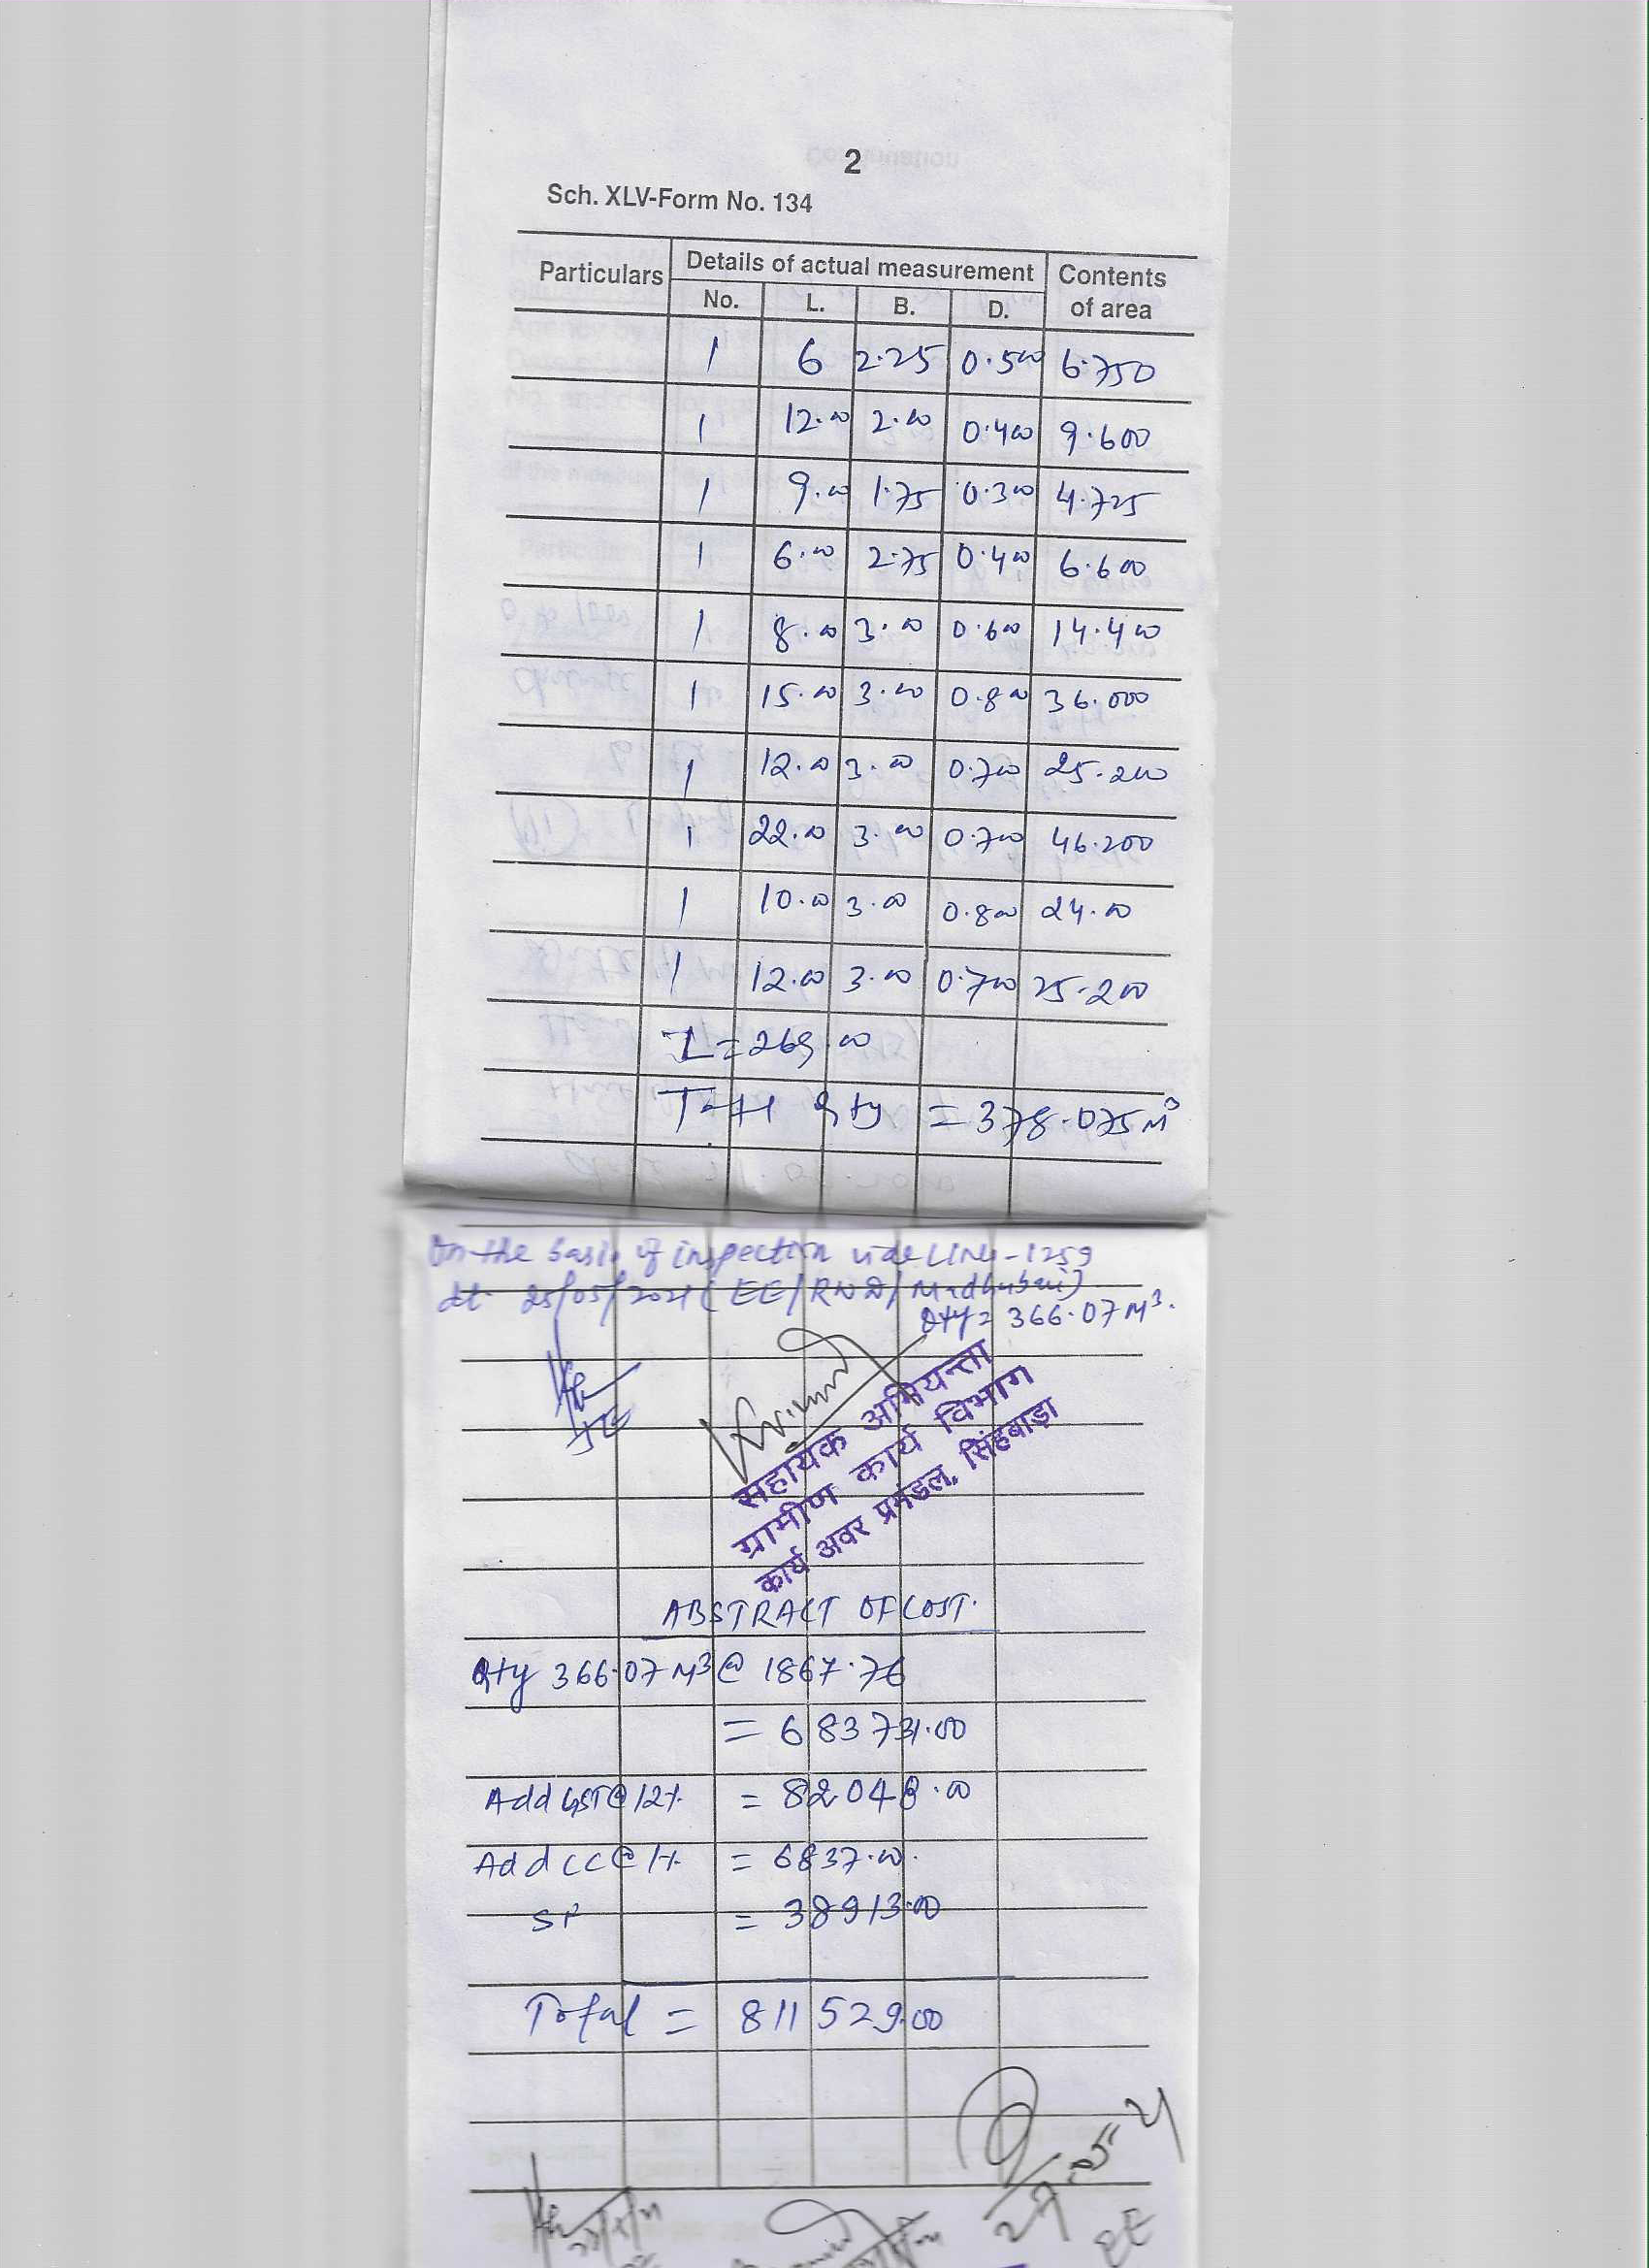 2
Sch. XLV-Form No. 134
Particulars Details of actual measurement Contents of area
No. L. B. D.
1 6 2.25 0.500 6.750
1 12.00 2.00 0.400 9.600
1 9.00 1.75 0.300 4.725
1 6.00 2.75 0.400 6.600
1 8.00 3.00 0.600 14.400
1 15.00 3.00 0.800 36.000
1 12.00 3.00 0.700 25.200
1 22.00 3.00 0.700 46.200
1 10.00 3.00 0.800 24.00
1 12.00 3.00 0.700 25.200
L = 269.00
Total Qty = 378.075 M³
On the basis of inspection vide L.No-1259
dt 25/05/2021 (EE/RWD/Madhubani)
Qty = 366.07 M³.
JE
सहायक अभियन्ता
ग्रामीण कार्य विभाग
कार्य अवर प्रमंडल, सिंहबाड़ा
ABSTRACT OF COST.
Qty 366.07 M³ @ 1867.76
= 683731.00
Add GST@12%. = 82048.00
Add CC@1%. = 6837.00.
SF = 38913.00
Total = 811529.00
27.05.21
EE